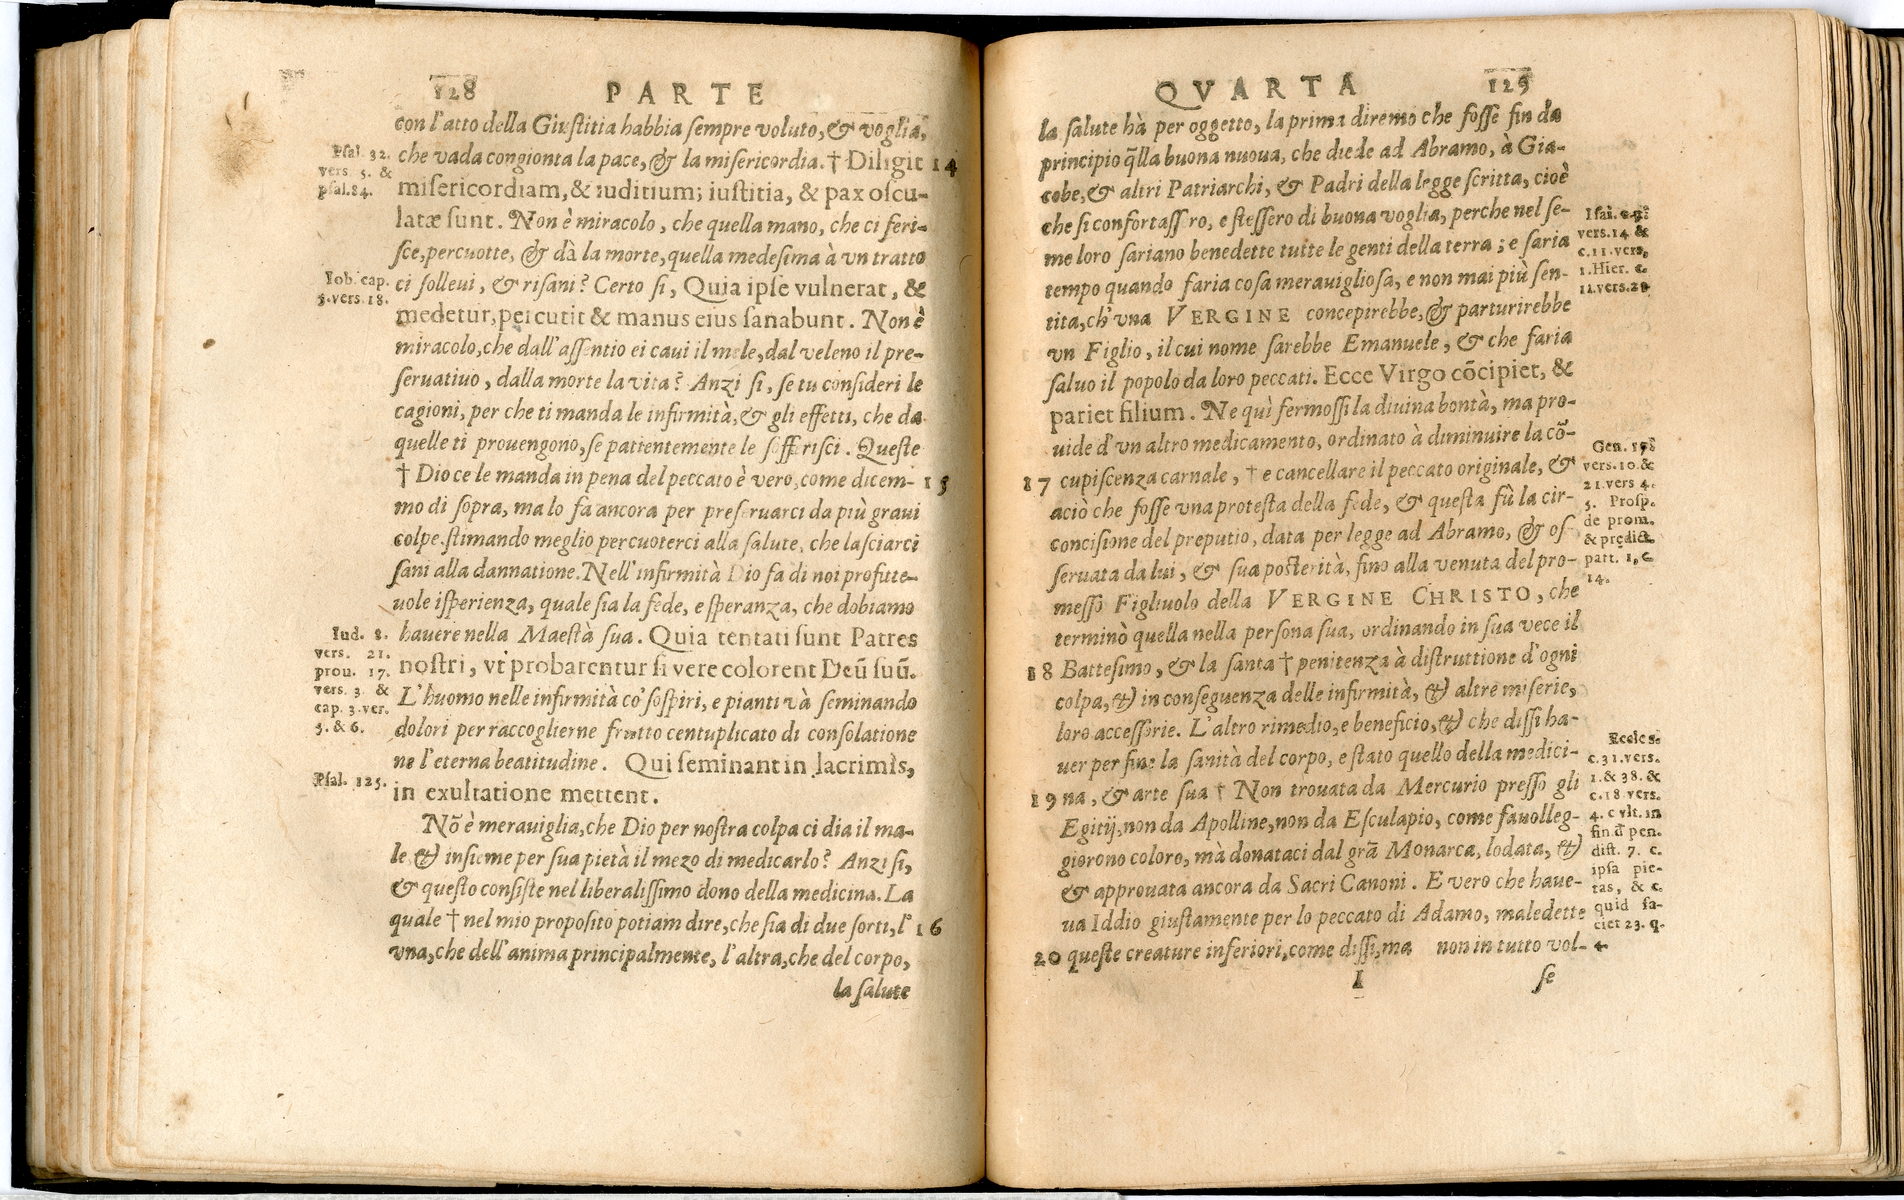 128 PARTE
con l'atto della Giuſtitia habbia ſempre voluto, & voglia,
che vada congionta la pace, & la miſericordia. † Diligit 14
miſericordiam, & iuditium; iuſtitia, & pax oſcu-
latæ ſunt. Non è miracolo, che quella mano, che ci feri-
ſce, percuotte, & dà la morte, quella medeſima à vn tratto
ci ſolleui, & riſani? Certo ſi, Quia ipſe vulnerat, &
medetur, percutit & manus eius ſanabunt. Non è
miracolo, che dall'aſſentio ei caui il mele, dal veleno il pre-
ſeruatiuo, dalla morte la vita? Anzi ſi, ſe tu conſideri le
cagioni, per che ti manda le infirmità, & gli effetti, che da
quelle ti prouengono, ſe patientemente le ſofferiſci. Queſte
† Dio ce le manda in pena del peccato è vero, come dicem- 15
mo di ſopra, ma lo fa ancora per preſeruarci da più graui
colpe. ſtimando meglio percuoterci alla ſalute, che laſciarci
ſani alla dannatione. Nell'infirmità Dio fa di noi profitte-
uole iſperienza, quale ſia la fede, e ſperanza, che dobiamo
hauere nella Maeſtà ſua. Quia tentati ſunt Patres
noſtri, vt probarentur ſi vere colorent Deū ſuū.
L'huomo nelle infirmità co' ſoſpiri, e pianti và ſeminando
dolori per raccoglierne frutto centuplicato di conſolatione
ne l'eterna beatitudine. Qui ſeminant in lacrimis,
in exultatione mettent.
Nō è merauiglia, che Dio per noſtra colpa ci dia il ma-
le & inſieme per ſua pietà il mezo di medicarlo? Anzi ſi,
& queſto conſiſte nel liberaliſſimo dono della medicina. La
quale † nel mio propoſito potiam dire, che ſia di due ſorti, l' 16
vna, che dell'anima principalmente, l'altra, che del corpo,
la ſalute
Pſal. 32.
vers. 5. &
pſal. 84.
Iob. cap.
5. vers. 18.
Iud. 8.
vers. 21.
prou. 17.
vers. 3. &
cap. 3. ver.
5. & 6.
Pſal. 125.
QVARTA 129
la ſalute hà per oggetto, la prima diremo che foſſe fin da
principio q̄lla buona nuoua, che diede ad Abramo, à Gia-
cobe, & altri Patriarchi, & Padri della legge ſcritta, cioè
che ſi confortaſſero, e ſteſſero di buona voglia, perche nel ſe-
me loro ſariano benedette tutte le genti della terra; e ſaria
tempo quando faria coſa merauiglioſa, e non mai più ſen-
tita, ch'vna VERGINE concepirebbe, & parturirebbe
vn Figlio, il cui nome ſarebbe Emanuele, & che faria
ſaluo il popolo da loro peccati. Ecce Virgo cōcipiet, &
pariet filium. Ne quì fermoſſi la diuina bontà, ma pro-
uide d'vn altro medicamento, ordinato à diminuire la cō-
17 cupiſcenza carnale, † e cancellare il peccato originale, &
aciò che foſſe vna proteſta della fede, & queſta fù la cir-
conciſione del preputio, data per legge ad Abramo, & oſ
ſeruata da lui, & ſua poſterità, fino alla venuta del pro-
meſſo Figliuolo della VERGINE CHRISTO, che
terminò quella nella perſona ſua, ordinando in ſua vece il
18 Batteſimo, & la ſanta † penitenza à diſtruttione d'ogni
colpa, & in conſeguenza delle infirmità, & altre miſerie,
loro acceſſorie. L'altro rimedio, e beneficio, & che diſſi ha-
uer per fine la ſanità del corpo, e ſtato quello della medici-
19 na, & arte ſua † Non trouata da Mercurio preſſo gli
Egitij, non da Apolline, non da Eſculapio, come fauolleg-
giorono coloro, mà donataci dal grā Monarca, lodata, &
& approuata ancora da Sacri Canoni. E vero che haue-
ua Iddio giuſtamente per lo peccato di Adamo, maledette
20 queſte creature inferiori, come diſſi, ma non in tutto vol-
I ſe
vers. 14 &
c. 11. vers.
1. Hier. c.
Gen. 17.
vers. 10. &
21. vers 4.
5. Proſp.
de prom.
& predict.
part. 1. c
14.
Eccleſ.
c. 31. vers.
1. & 38. &
c. 18. vers.
4. c vlt. in
fin. đ pen.
diſt. 7. c.
ipſa pie-
tas, & c.
quid fa-
ciet 23. q.
4.